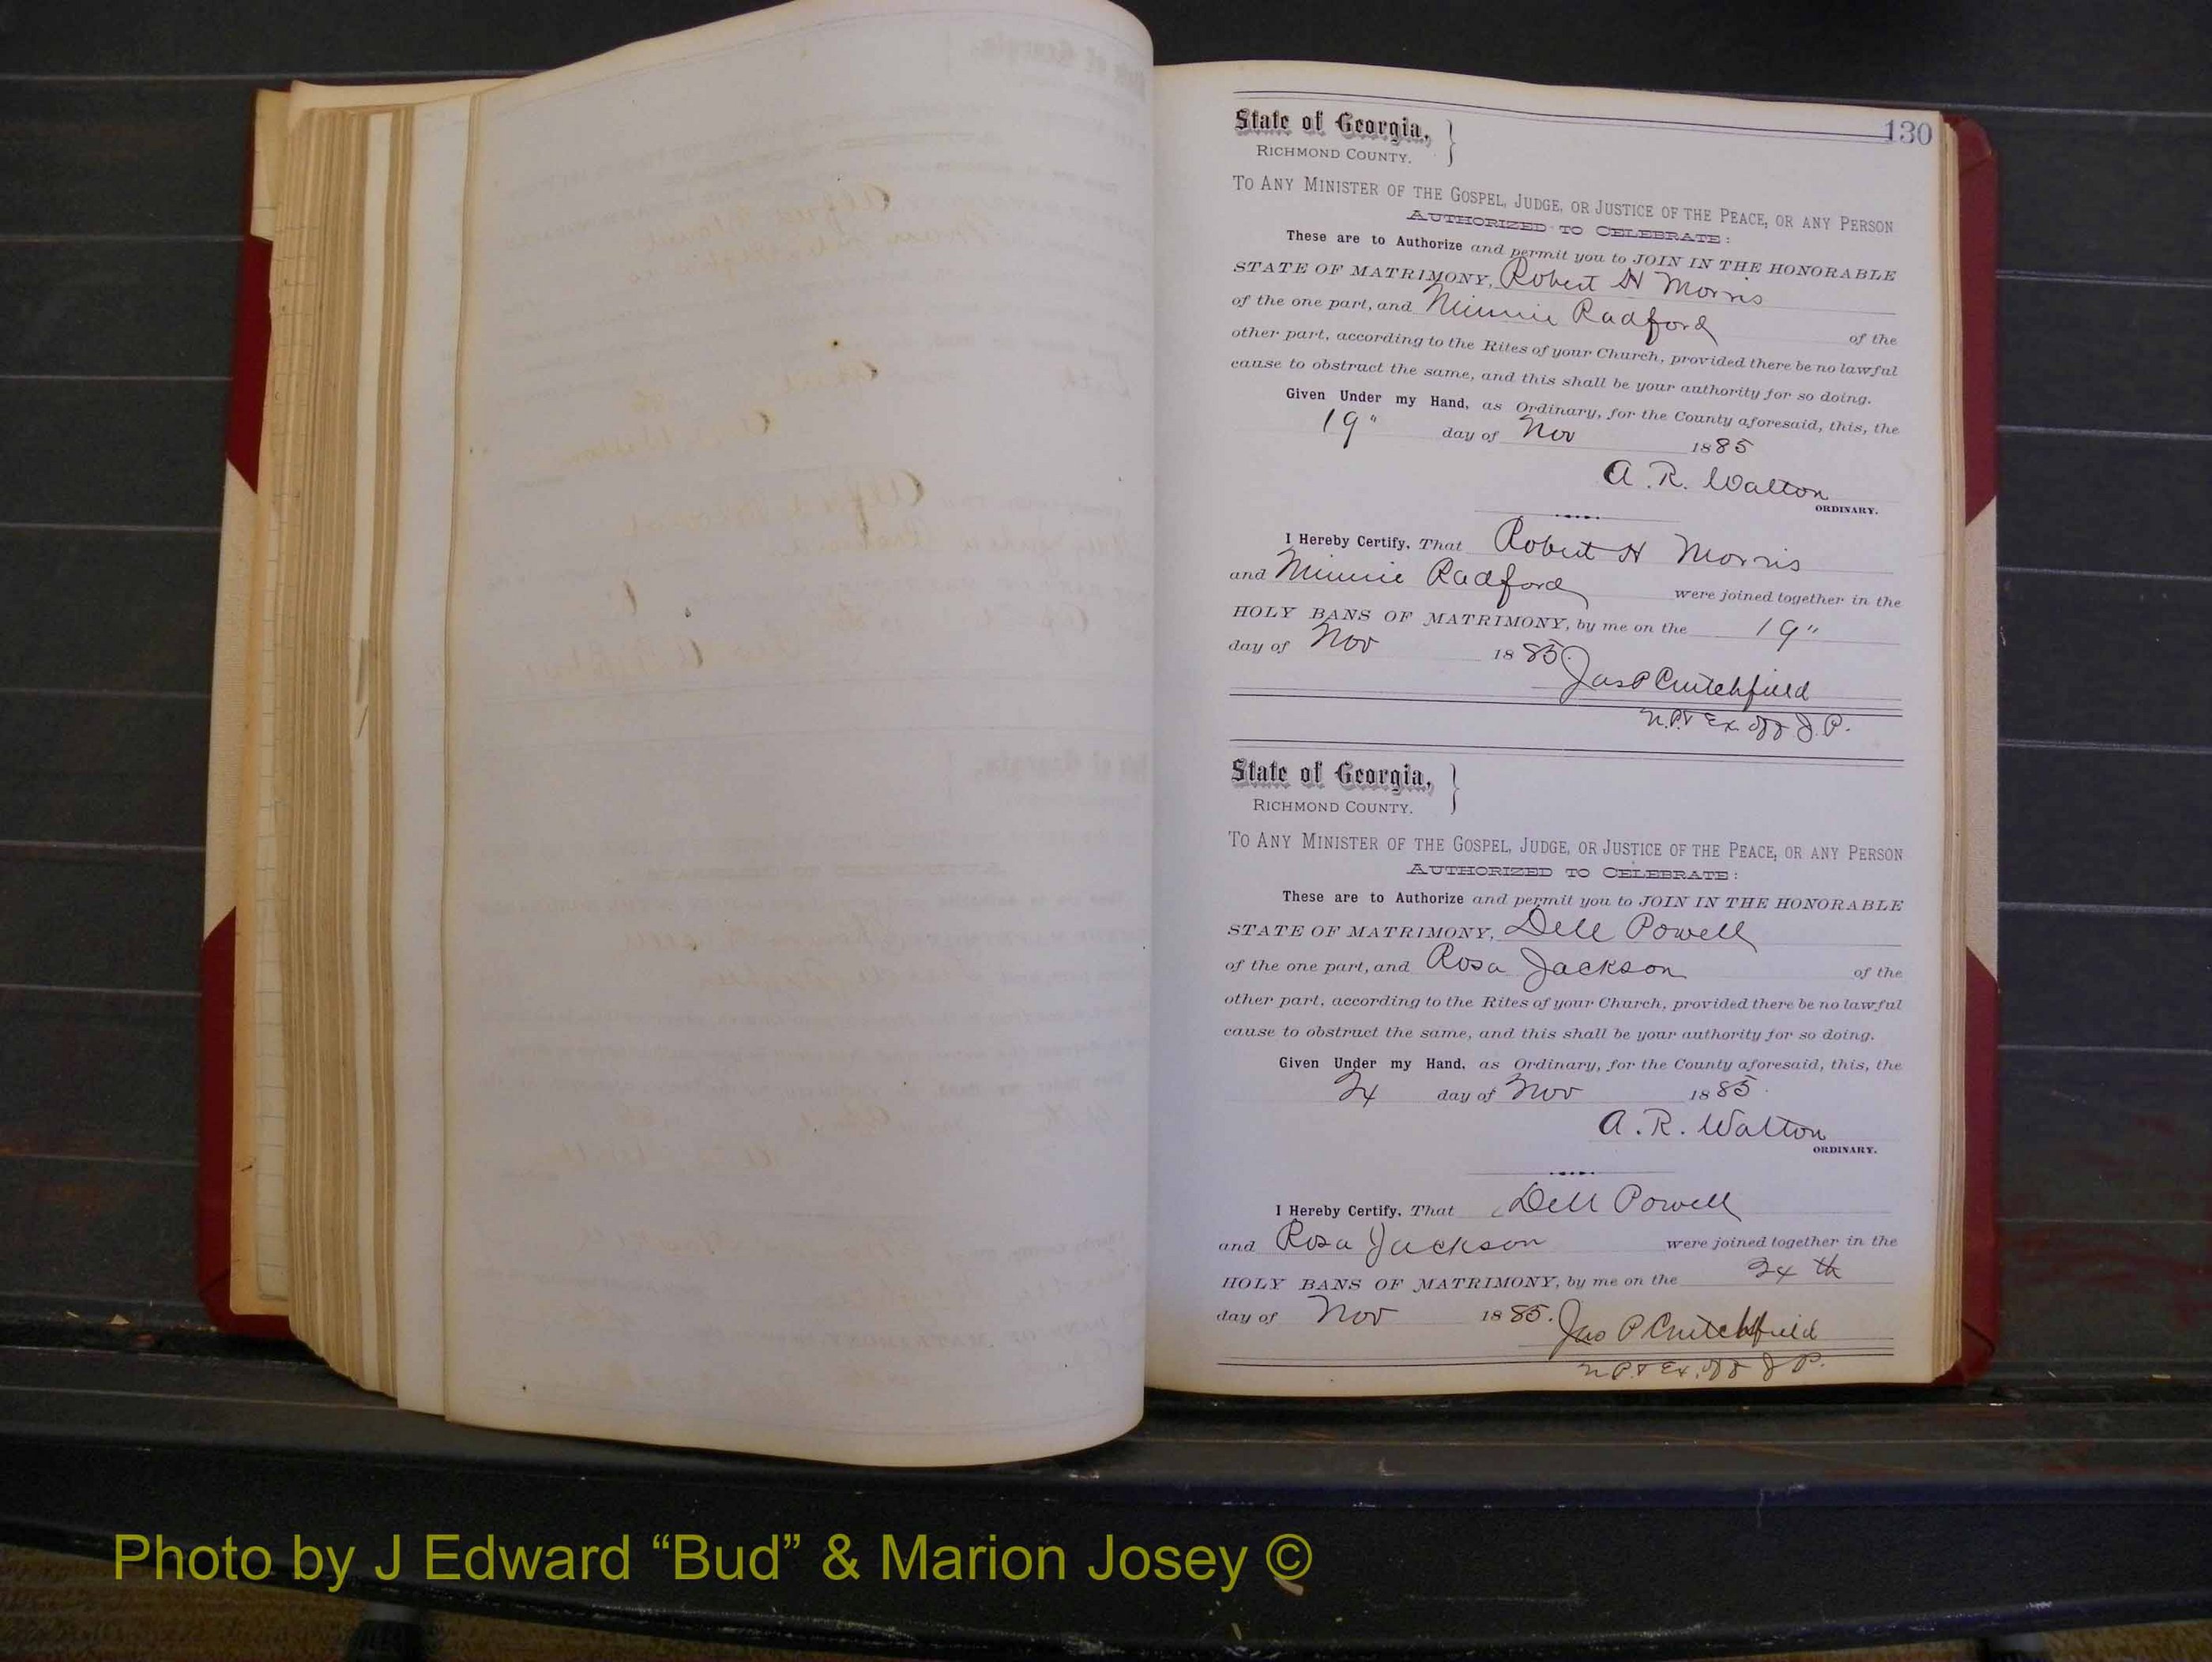 130
State of Georgia,
RICHMOND COUNTY.
TO ANY MINISTER OF THE GOSPEL, JUDGE, OR JUSTICE OF THE PEACE, OR ANY PERSON
AUTHORIZED TO CELEBRATE:
These are to Authorize and permit you to JOIN IN THE HONORABLE
STATE OF MATRIMONY, Robert H Morris
of the one part, and Minnie Radford of the
other part, according to the Rites of your Church, provided there be no lawful
cause to obstruct the same, and this shall be your authority for so doing.
Given Under my Hand, as Ordinary, for the County aforesaid, this, the
19" day of Nov 1885
A. R. Walton
ORDINARY.
I Hereby Certify, That Robert H Morris
and Minnie Radford were joined together in the
HOLY BANS OF MATRIMONY, by me on the 19"
day of Nov 1885.
Jas P Crutchfield
N.P. & Ex off J.P.
State of Georgia,
RICHMOND COUNTY.
TO ANY MINISTER OF THE GOSPEL, JUDGE, OR JUSTICE OF THE PEACE, OR ANY PERSON
AUTHORIZED TO CELEBRATE:
These are to Authorize and permit you to JOIN IN THE HONORABLE
STATE OF MATRIMONY, Dell Powell
of the one part, and Rosa Jackson of the
other part, according to the Rites of your Church, provided there be no lawful
cause to obstruct the same, and this shall be your authority for so doing.
Given Under my Hand, as Ordinary, for the County aforesaid, this, the
24 day of Nov 1885.
A. R. Walton
ORDINARY.
I Hereby Certify, That Dell Powell
and Rosa Jackson were joined together in the
HOLY BANS OF MATRIMONY, by me on the 24th
day of Nov 1885.
Jas P Crutchfield
N.P. & Ex. off J P.
Photo by J Edward “Bud” & Marion Josey ©